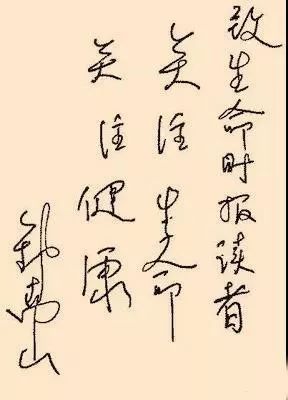 致生命时报读者
关注生命
关注健康
钟南山